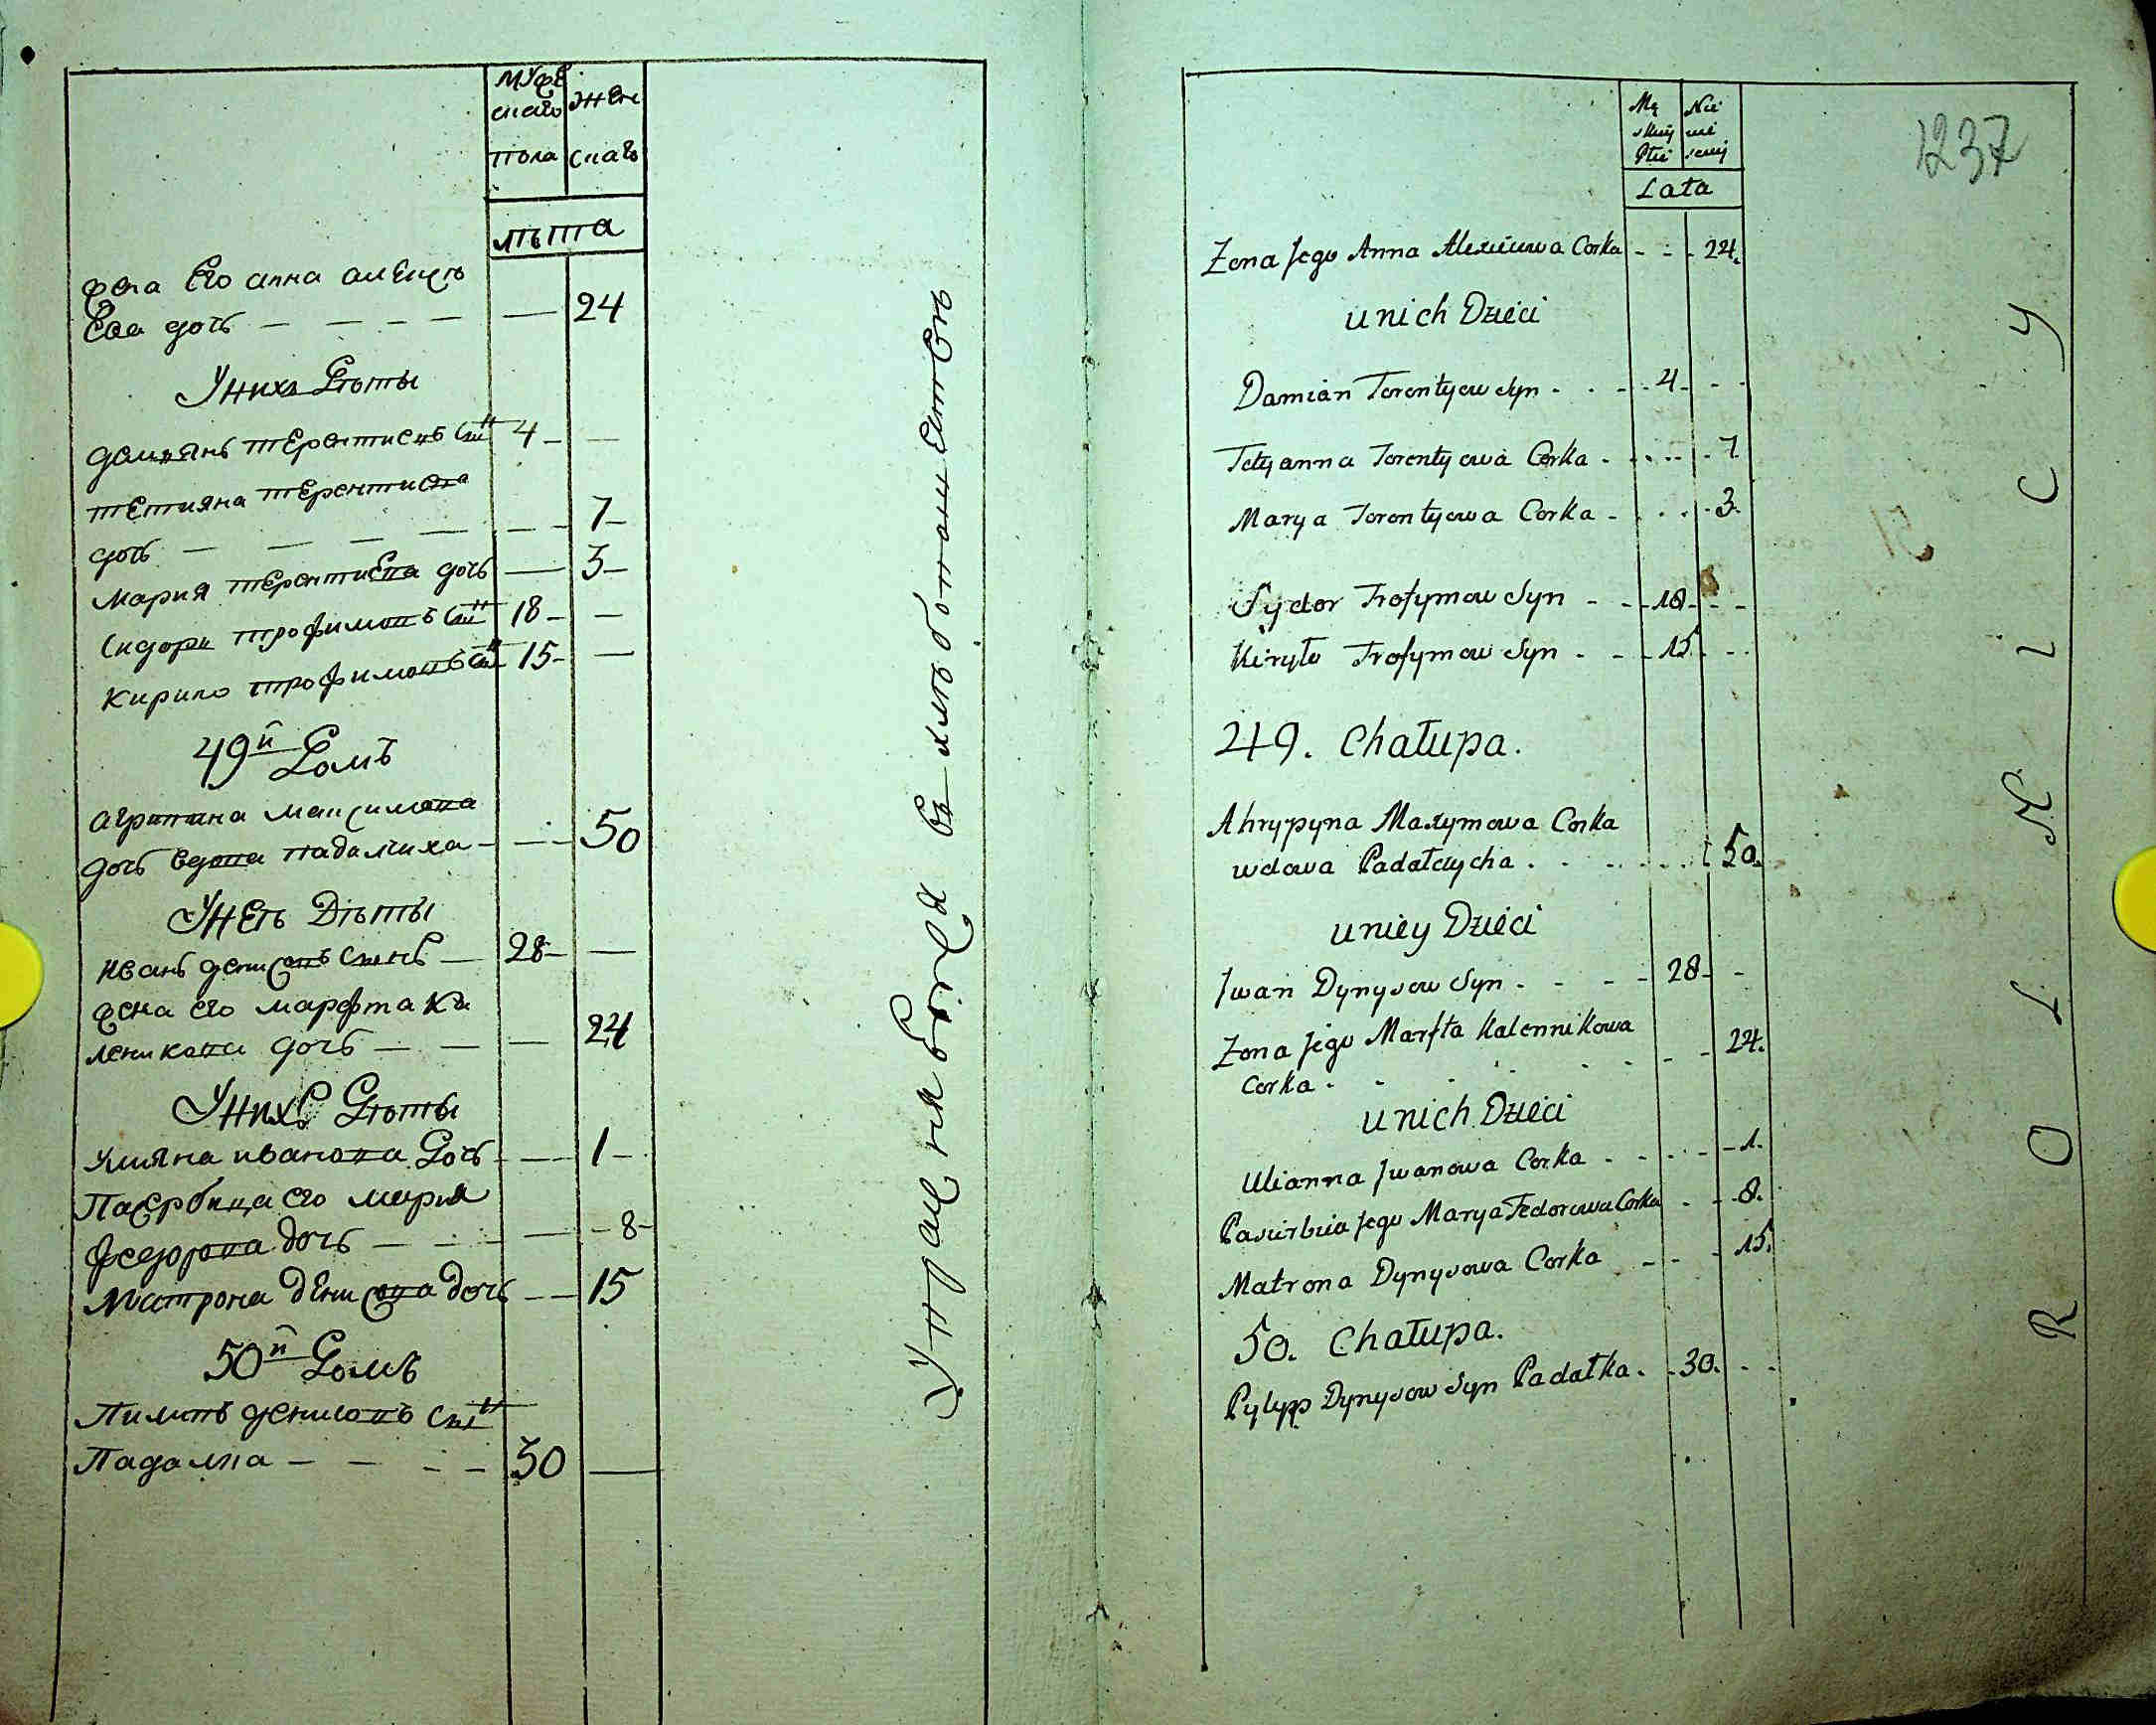 мужескаго пола
женскаго
лѣта
жена Его анна алеѯѣ
Ева дочь — — — — 24
У нихъ Дѣти
дамиянъ терентиевъ синъ 4 —
тетияна терентиева
дочь — — — — 7
Мария терентиева дочь — 3
Сидоръ трофимовъ синъ 18 —
Кирило трофимовъ синъ 15 —
49й Домъ
агрипина максимова
дочь вдова падалчиха — 50
У неѣ Дѣты
иванъ денисовъ синъ — 28 —
жена его марфта ка
леникова дочь — — — 24
У нихъ Дѣты
улияна иванова дочь — 1
Пасербица его мария
федорова дочь — — 8
Матрона денисова дочь — 15
50й Домъ
Пилипъ денисовъ синъ
Падалка — — — — 30 —
Упражняющейся въ хлѣбопашествѣ
Męskiey Płci
Niewieściey
Lata
1237
Zona Jego Anna Alexiiowa Corka - - - 24.
u nich Dzieci
Damian Terentyow Syn - - - 4 - -
Tetyanna Terentyowa Corka - - - 7
Marya Terentyowa Corka - - - 3.
Sydor Trofymow Syn - - - 18 - -
Kiryło Trofymow Syn - - - 15. - -
49. Chałupa.
Ahrypyna Maxymowa Corka
wdowa Padałczycha . . . 50.
u niey Dzieci
Jwan Dynysow Syn - - - 28 - -
Zona Jego Marfta Kalennikowa
Corka - - - 24.
u nich Dzieci
Ulianna Jwanowa Corka - - - 1.
Pasierbica Jego Marya Fedorowa Corka - - 8.
Matrona Dynysowa Corka - - - 15.
50. Chałupa.
Pylypp Dynysow Syn Padałka. - 30. - -
ROLNICY